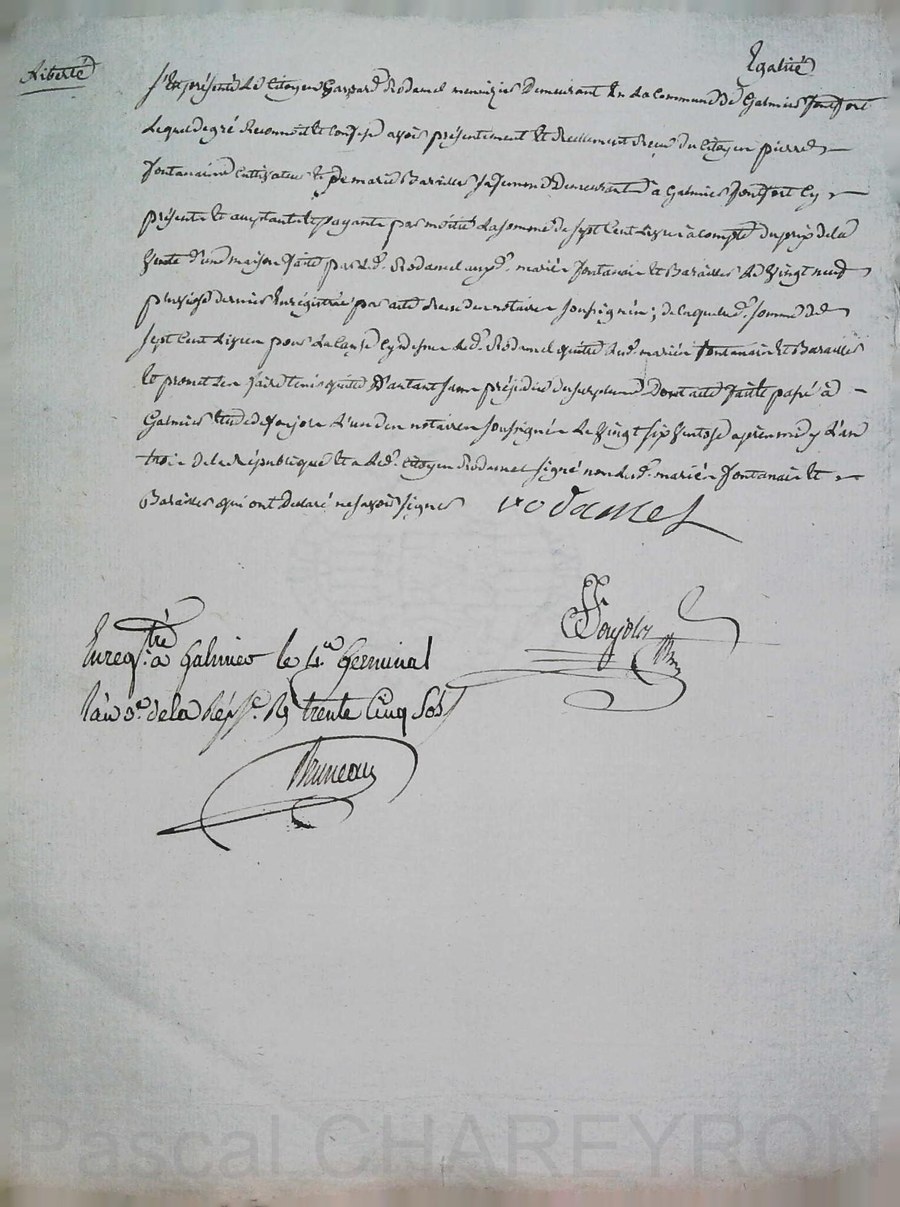 Liberté
Egalité
S'est présenté le citoyen Gaspard Rodamel menuizier demeurant en la commune de Galmier Fontfort
lequel de gré reconnoit et confesse avoir présentement et réellement reçu du citoyen pierre
fontanair cultivateur et de marie Barailler sa femme demeurant à Galmier fontfort cy
présents et acceptants et payants par moitié la somme de sept cent livres à compte du prix de la
vente d'une maison faite par led. Rodamel auxd. mariés fontanair et Barailler le vingt neuf
pluviose dernier enregistrée par acte reçu des notaires soussignés; de laquelle d. somme de
sept cent livres pour la cause cy dessus led. Rodamel quitte lesd. mariés fontanair et Barailler
et promet les faire tenir quitte d'autant sans préjudice du surplus dont acte fait et passé à
Galmier étude de Joujoly l'un des notaires soussignés le vingt six ventose après midy l'an
trois de la république et a led. citoyen Rodamel signé non lesd. mariés fontanair et
Barailler qui ont déclaré ne savoir signer rodamel
Enregtré à Galmier le 4e Germinal
l'an 3e de la Répe. R trente Cinq Sols
Bruneau